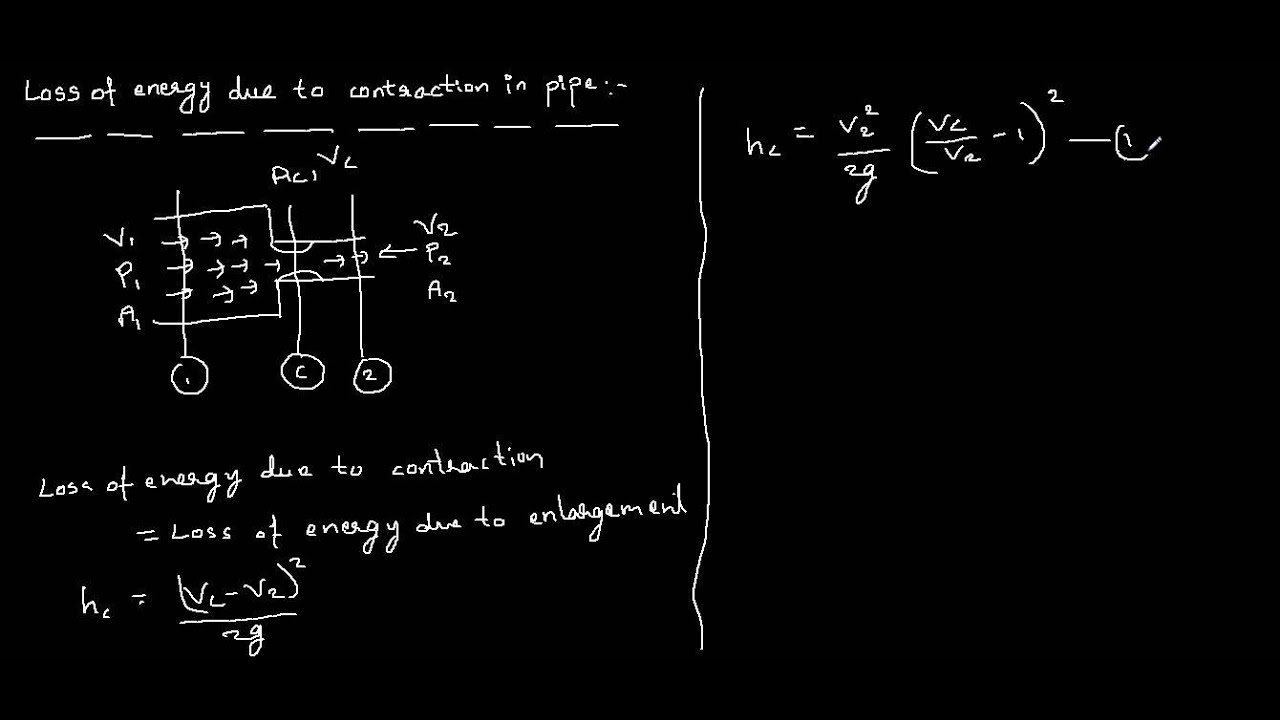 Loss of energy due to contraction in pipe:-
Ac, Vc
V1
P1
A1
V2
P2
A2
1
c
2
Loss of energy due to contraction
= Loss of energy due to enlargement
hc = (Vc-V2)² / 2g
hc = V2² / 2g (Vc / V2 - 1)² — 1